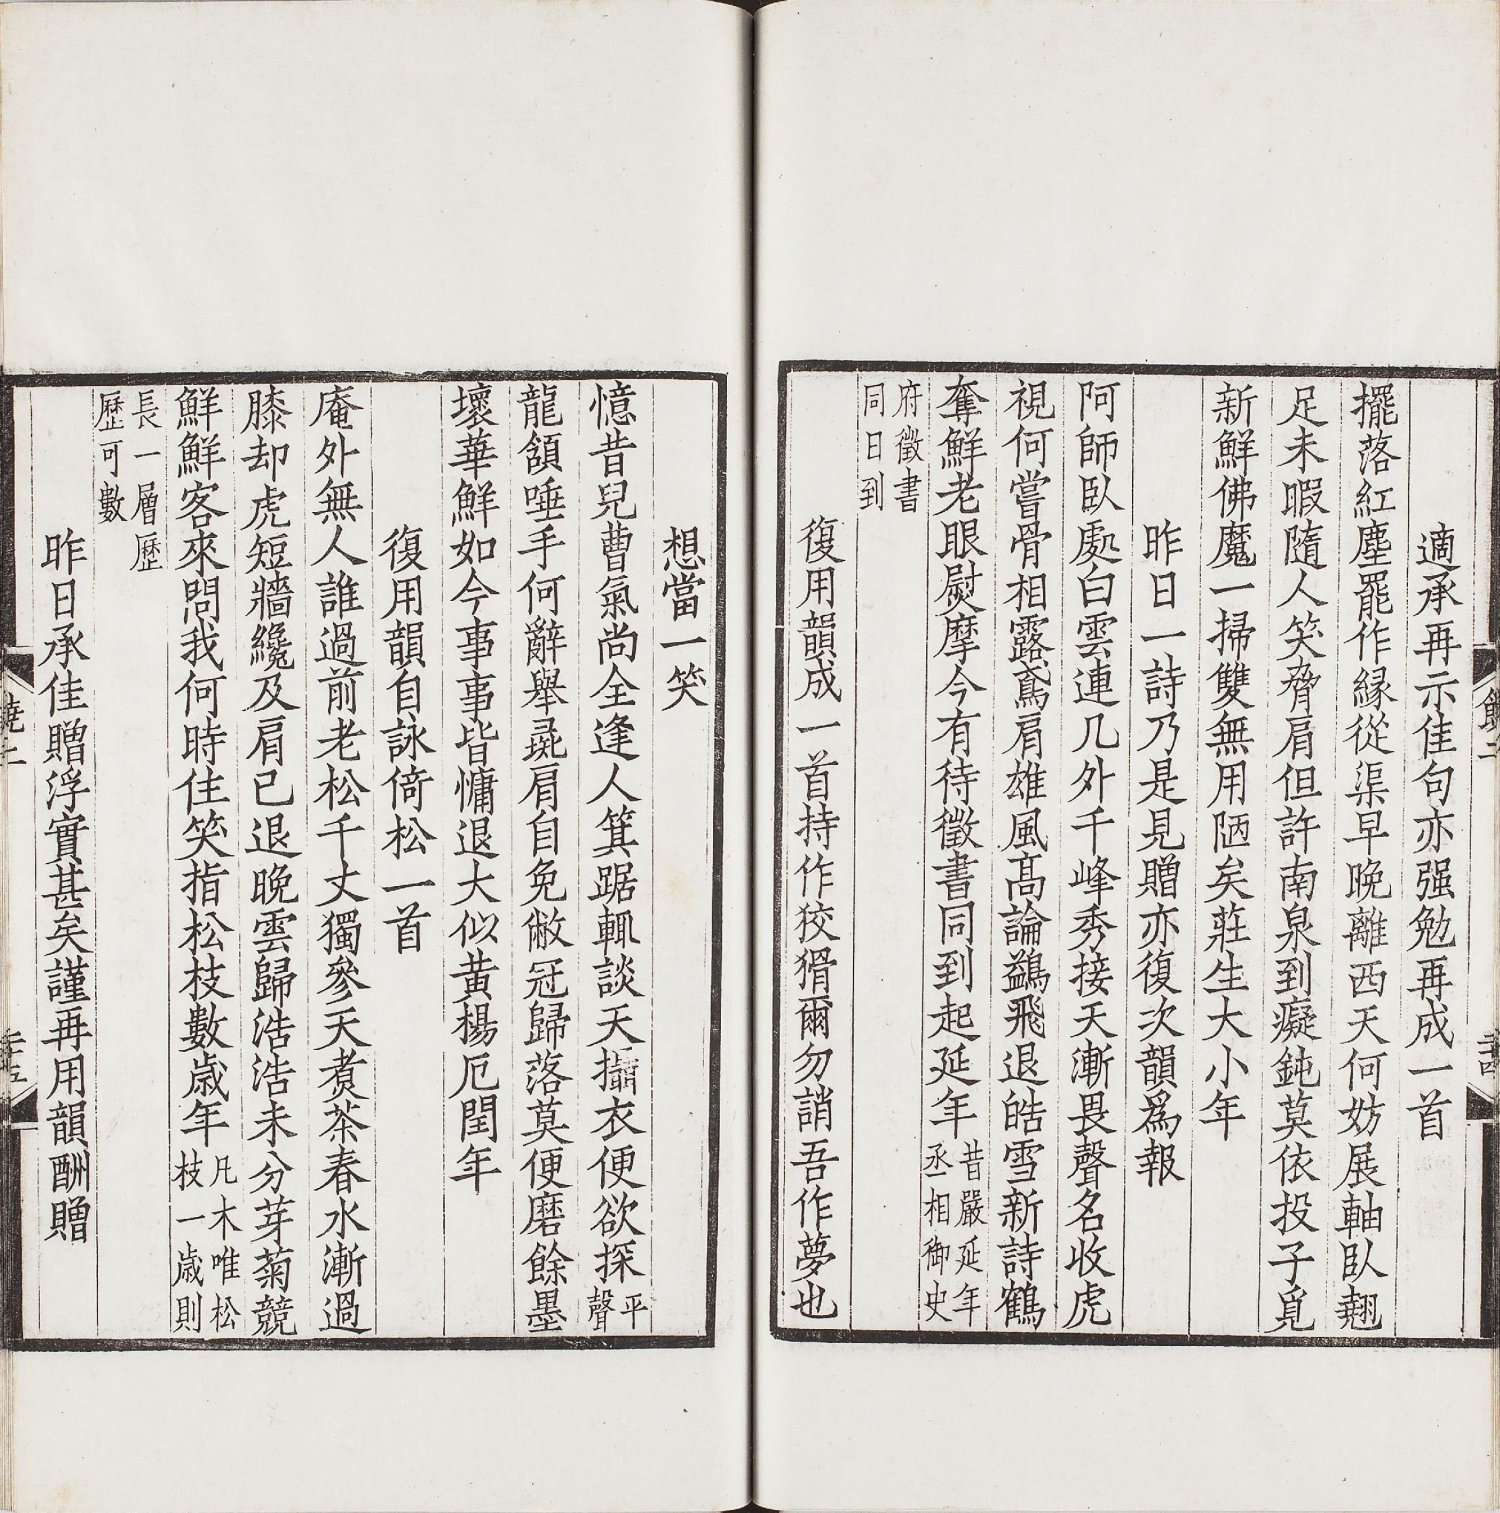 適承再示佳句亦强勉再成一首
擺落紅塵罷作緣從渠早晚離西天何妨展軸臥翹
足未暇隨人笑脅肩但許南泉到癡鈍莫依投子覓
新鮮佛魔一掃雙無用陋矣莊生大小年
昨日一詩乃是見贈亦復次韻爲報
阿師臥處白雲連几外千峰秀接天漸畏聲名收虎
視何嘗骨相露鳶肩雄風高論鷁飛退皓雪新詩鶴
奪鮮老眼熨摩今有待徵書同到起延年昔嚴延年
丞相御史
府徵書
同日到
復用韻成一首持作狡獪爾勿誚吾作夢也
想當一笑
憶昔兒曹氣尚全逢人箕踞輒談天攝衣便欲探平
聲
龍頷唾手何辭舉彘肩自免敝冠歸落莫便磨餘墨
壞華鮮如今事事皆慵退大似黃楊厄閏年
復用韻自詠倚松一首
庵外無人誰過前老松千丈獨參天煑茶春水漸過
膝却虎短牆纔及肩已退晚雲歸浩浩未分芽菊競
鮮鮮客來問我何時住笑指松枝數歲年凡木唯松
枝一歲則
長一層歷
歷可數
昨日承佳贈浮實甚矣謹再用韻酬贈